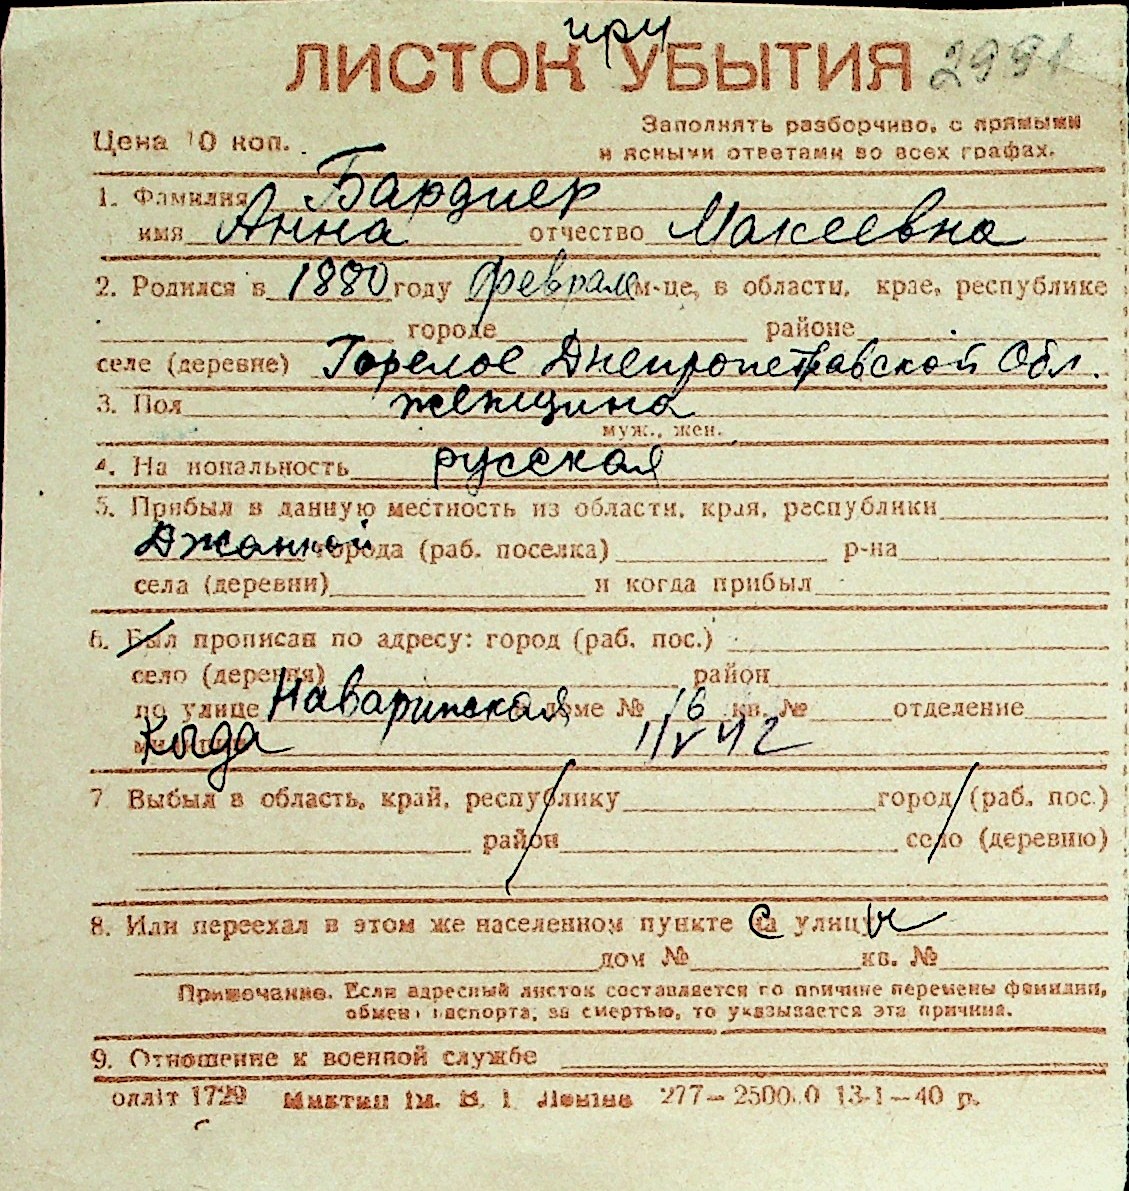 при
ЛИСТОК УБЫТИЯ 2991
Цена 10 коп.
Заполнять разборчиво, с прямыми
и ясными ответами во всех графах.
1. Фамилия Бардиер
имя Анна отчество Макеевна
2. Родился в 1880 году феврале м-це, в области, крае, республике
городе районе
селе (деревне) Горелое Днепропетравской Обл.
3. Пол женщина
муж., жен.
4. Национальность русская
5. Прибыл в данную местность из области, края, республики
Джанкой города (раб. поселка) р-на
села (деревни) и когда прибыл
6. Был прописан по адресу: город (раб. пос.)
село (деревня) район
по улице Наваринская доме № 16 кв. № отделение
Когда 1/V 42
7 Выбыл в область, край, республику город (раб. пос.)
район село (деревню)
8. Или переехал в этом же населенном пункте с улицы
дом № кв. №
Примечание. Если адресный листок составляется по причине перемены фамилии,
обмена паспорта, за смертью, то указывается эта причина.
9. Отношение к военной службе
1729 277— 13-1—40 р.